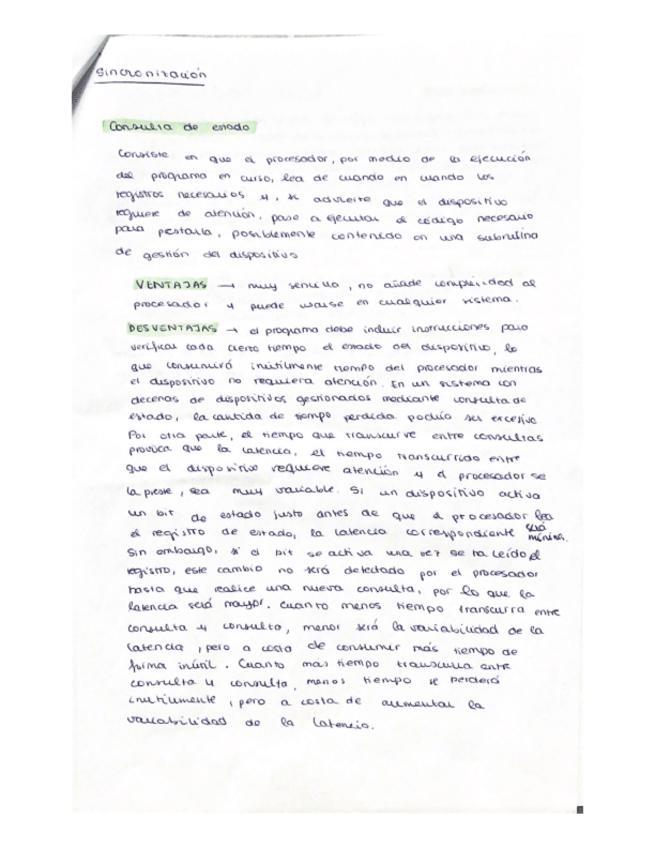 Sincronización
Consulta de estado
Consiste en que el procesador, por medio de la ejecución
del programa en curso, lea de cuando en cuando los
registros necesarios y, si advierte que el dispositivo
requiere de atención, pase a ejecutar el código necesario
para prestarla, posiblemente contenido en una subrutina
de gestión del dispositivo
VENTAJAS → muy sencillo, no añade complejidad al
procesador y puede usarse en cualquier sistema.
DESVENTAJAS → el programa debe incluir instrucciones para
verificar cada cierto tiempo el estado del dispositivo, lo
que consumirá inútilmente tiempo del procesador mientras
el dispositivo no requiera atención. En un sistema con
decenas de dispositivos gestionados mediante consulta de
estado, la cantidad de tiempo perdida podría ser excesivo
Por otra parte, el tiempo que transcurre entre consultas
provoca que la latencia, el tiempo transcurrido entre
que el dispositivo requiere atención y el procesador se
la preste, sea muy variable. Si un dispositivo activa
un bit de estado justo antes de que el procesador lea
el registro de estado, la latencia correspondiente será mínima.
Sin embargo, si el bit se activa una vez se ha leído el
registro, este cambio no será detectado por el procesador
hasta que realice una nueva consulta, por lo que la
latencia será mayor. Cuanto menos tiempo transcurra entre
consulta y consulta, menor será la variabilidad de la
latencia, pero a costa de consumir más tiempo de
forma inútil. Cuanto mas tiempo transcurra entre
consulta y consulta, menos tiempo se perderá
inutilmente, pero a costa de aumentar la
variabilidad de la latencia.